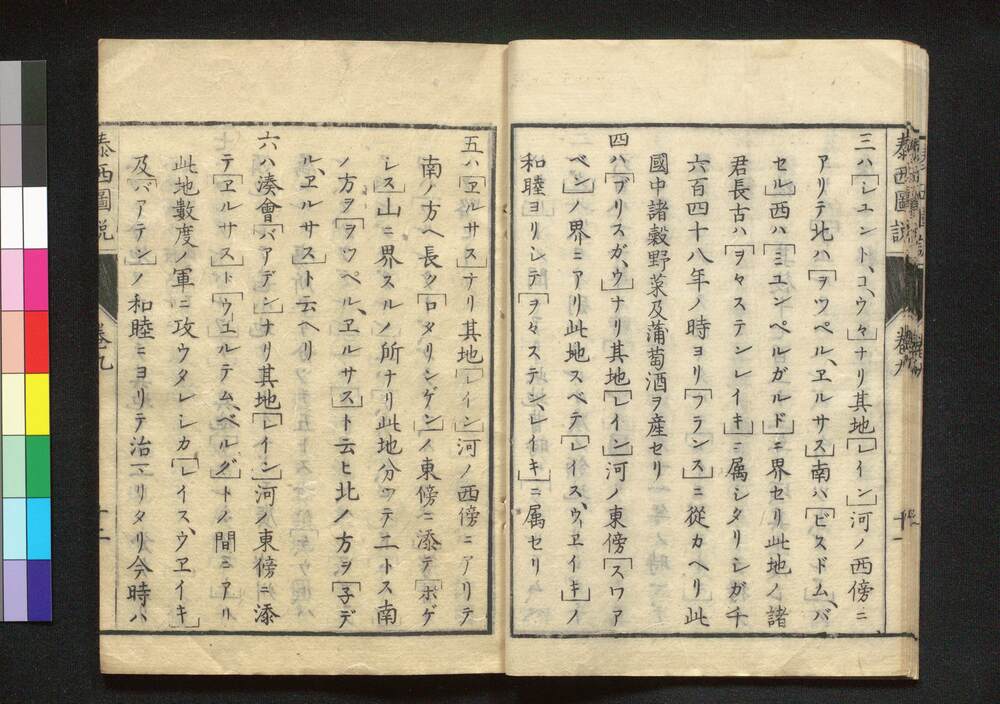 三ハ「シュント、コ、ウ々」ナリ其地「レイン」河ノ西傍ニ
アリテ北ハ「ヲツペル、ヱルサス」南ハ「ビスドム、バ
セル」西ハ「ミュンペルガルド」ニ界セリ此地ノ諸
君長古ハ「ヲヲステンレイキ」ニ属シタリシガ千
六百四十八年ノ時ヨリ「フランス」ニ從カヘリ此
國中諸穀野菜及蒲萄酒ヲ産セリ
四ハ「ブリスガ、ウ」ナリ其地「レイン」河ノ東傍「スワア
ベン」ノ界ニアリ此地スベテ「レイス、ウヱイキ」ノ
和睦ヨリシテ「ヲヲステン、レイキ」ニ属セリ
五ハ「ヱルサス」ナリ其地「レイン」河ノ西傍ニアリテ
南ノ方ヘ長ク「ロタリンゲン」ノ東傍ニ添テ「ボゲ
レス」山ニ界スルノ所ナリ此地分ツテ二トス南
ノ方ヲ「ヲツペル、ヱルサス」ト云ヒ北ノ方ヲ「子デ
ル、ヱルサス」ト云ヘリ
六ハ湊會「バアデン」ナリ其地「レイン」河ノ東傍ニ添
テ「ヱルサス」ト「ウエルテム、ベルグ」トノ間ニアリ
此地數度ノ軍ニ攻ウタレシカ「レイス、ウヱイキ」
及「バアテン」ノ和睦ニヨリテ治マリタリ今時ハ
泰西圖説
卷九
十二